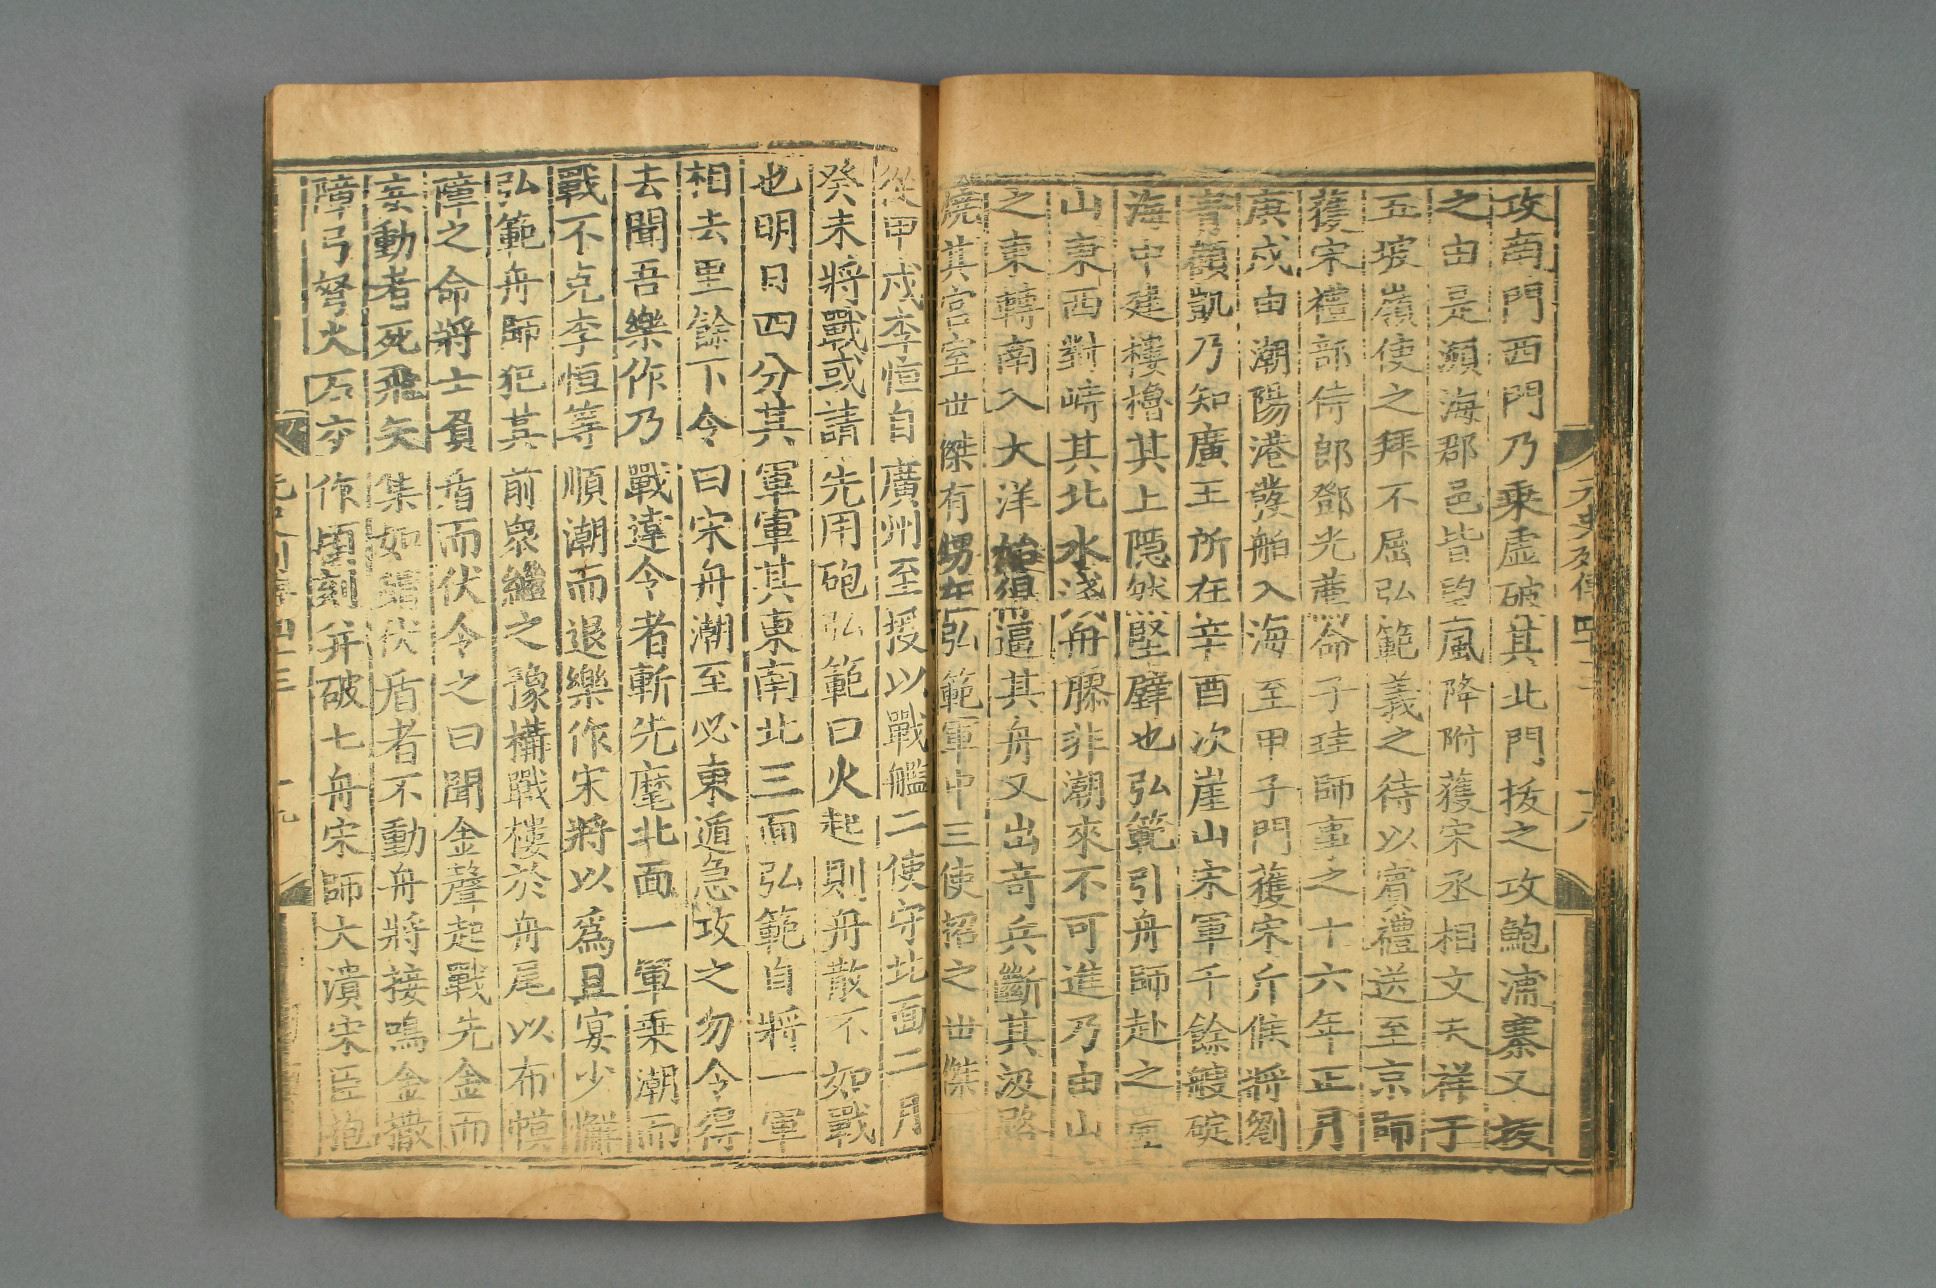 攻南門西門乃乘虛破其北門拔之攻鮑浦寨又拔
之由是瀕海郡邑皆望風降附獲宋丞相文天祥于
五坡嶺使之拜不屈弘範義之待以賓禮送至京師
獲宋禮部侍郎鄧光薦命子珪師事之十六年正月
庚戌由潮陽港發舶入海至甲子門獲宋斥候將劉
青顧凱乃知廣王所在辛酉次崖山宋軍千餘艘碇
海中建樓櫓其上隱然堅壁也弘範引舟師赴之崖
山東西對峙其北水淺舟膠非潮來不可進乃由山
之東轉南入大洋始得逼其舟又出奇兵斷其汲路
燒其宮室世傑有甥在弘範軍中三使招之世傑
元史列傳四十三
十八
從甲戌李恒自廣州至授以戰艦二使守北面二月
癸未將戰或請先用砲弘範曰火起則舟散不如戰
也明日四分其軍軍其東南北三面弘範自將一軍
相去里餘下令曰宋舟潮至必東遁急攻之勿令得
去聞吾樂作乃戰違令者斬先麾北面一軍乘潮而
戰不克李恒等順潮而退樂作宋將以為且宴少懈
弘範舟師犯其前衆繼之豫構戰樓於舟尾以布幙
障之命將士負盾而伏令之曰聞金聲起戰先金而
妄動者死飛矢集如蝟伏盾者不動舟將接鳴金撤
障弓弩火石交作頃刻并破七舟宋師大潰宋臣抱
元史列傳四十三
十九